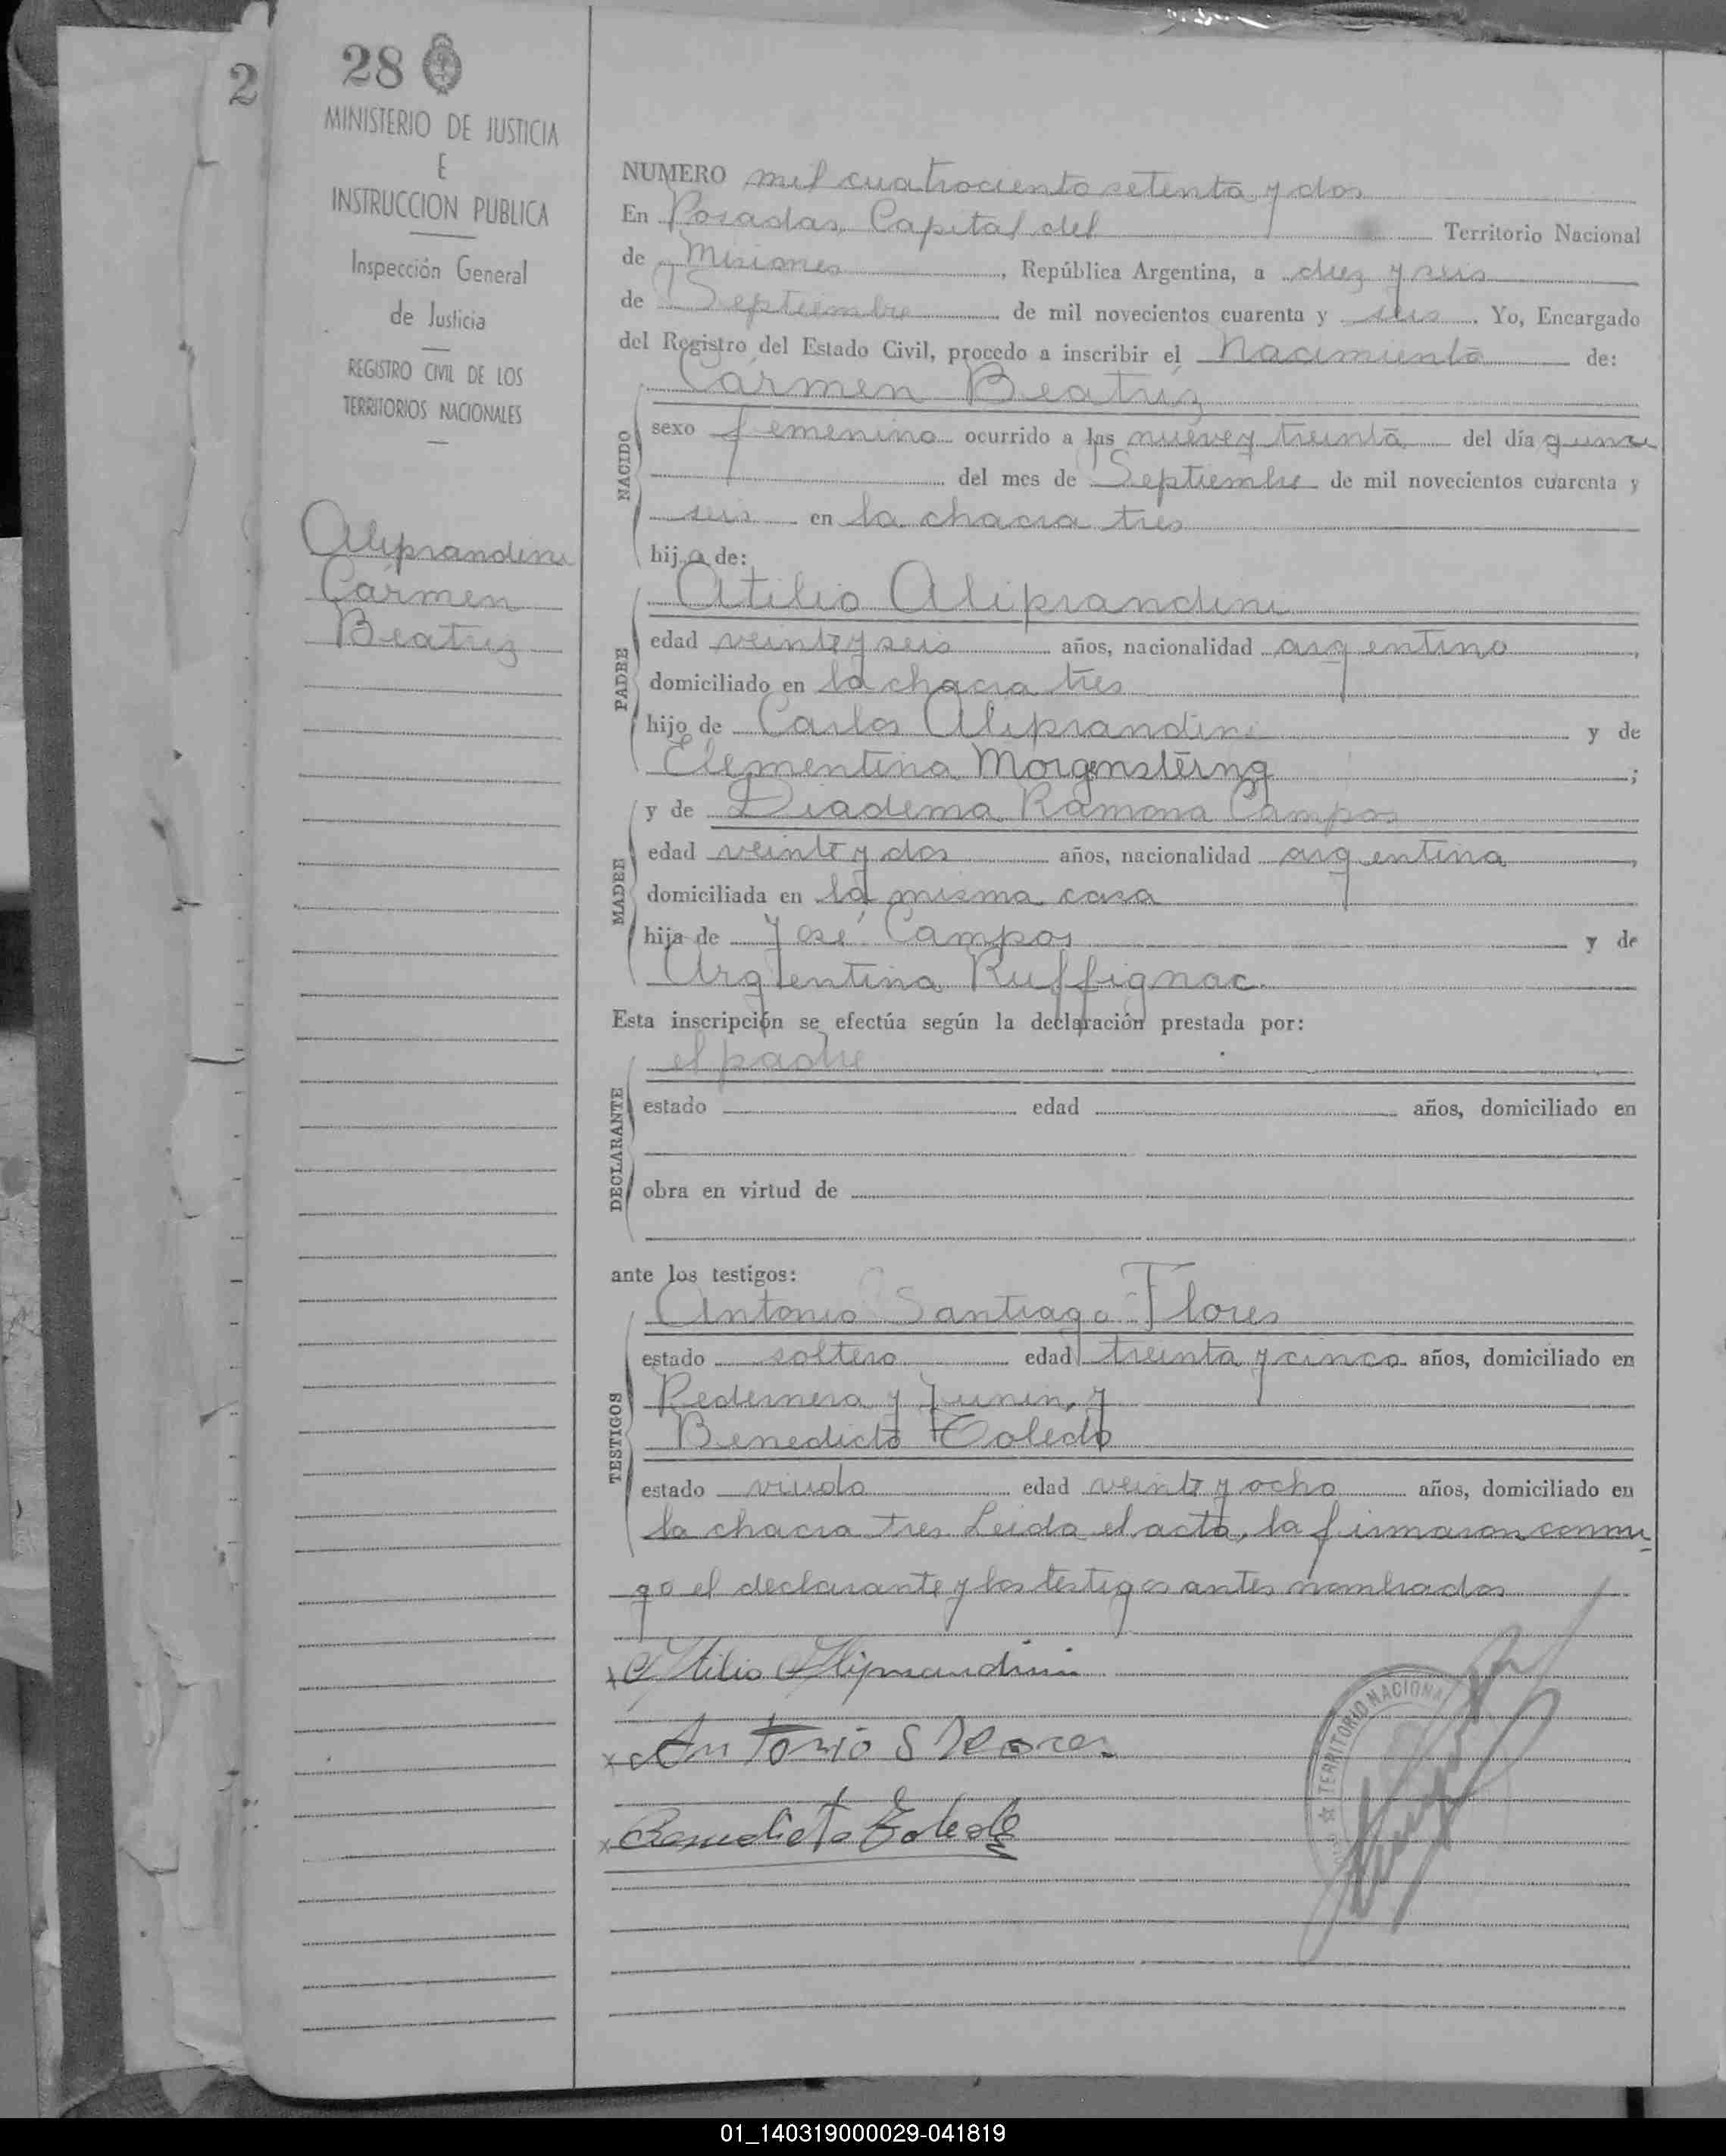 2
28
MINISTERIO DE JUSTICIA
E
INSTRUCCION PUBLICA
Inspección General
de Justicia
REGISTRO CIVIL DE LOS
TERRITORIOS NACIONALES
Aliprandini
Carmen
Beatriz
NUMERO mil cuatrociento setenta y dos
En Posadas, Capital del Territorio Nacional
de Misiones, República Argentina, a diez y seis
de Septiembre de mil novecientos cuarenta y seis. Yo, Encargado
del Registro del Estado Civil, procedo a inscribir el Nacimiento de:
Carmen Beatriz
NACIDO
sexo femenino ocurrido a las nueve y treinta del día quince
del mes de Septiembre de mil novecientos cuarenta y
seis en la chacra tres
hija de:
Atilio Aliprandini
PADRE
edad veinte y seis años, nacionalidad argentino,
domiciliado en la chacra tres
hijo de Carlos Aliprandini y de
Clementina Morgensterng;
MADRE
y de Diadema Ramona Campos
edad veinte y dos años, nacionalidad argentina,
domiciliada en la misma casa
hija de José Campos y de
Argentina Ruffignac.
Esta inscripción se efectúa según la declaración prestada por:
el padre
DECLARANTE
estado edad años, domiciliado en
obra en virtud de
ante los testigos:
Antonio Santiago Flores
TESTIGOS
estado soltero edad treinta y cinco años, domiciliado en
Pedernera y Junin, y
Benedicto Toledo
estado viudo edad veinte y ocho años, domiciliado en
la chacra tres. Leida el acta, la firmaron conmi
go el declarante y los testigos antes nombrados
Atilio Aliprandini
Antonio S Flores
Benedicto Toledo
TERRITORIO NACIONAL
01_140319000029-041819